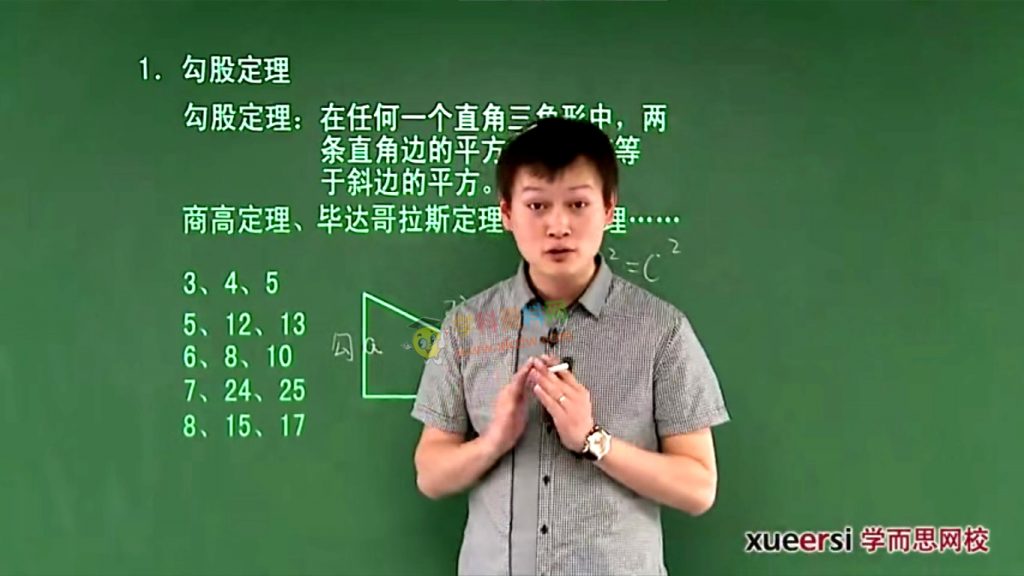 1. 勾股定理
勾股定理：在任何一个直角三角形中，两
条直角边的平方 等
于斜边的平方。
商高定理、毕达哥拉斯定理 理……
²=C²
3、4、5
5、12、13
6、8、10
7、24、25
8、15、17
勾 a
xueersi 学而思网校